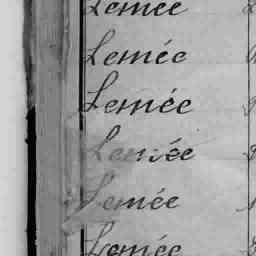 Lemée
Lemée
Lemée
Lemée
Lemée
Lemée